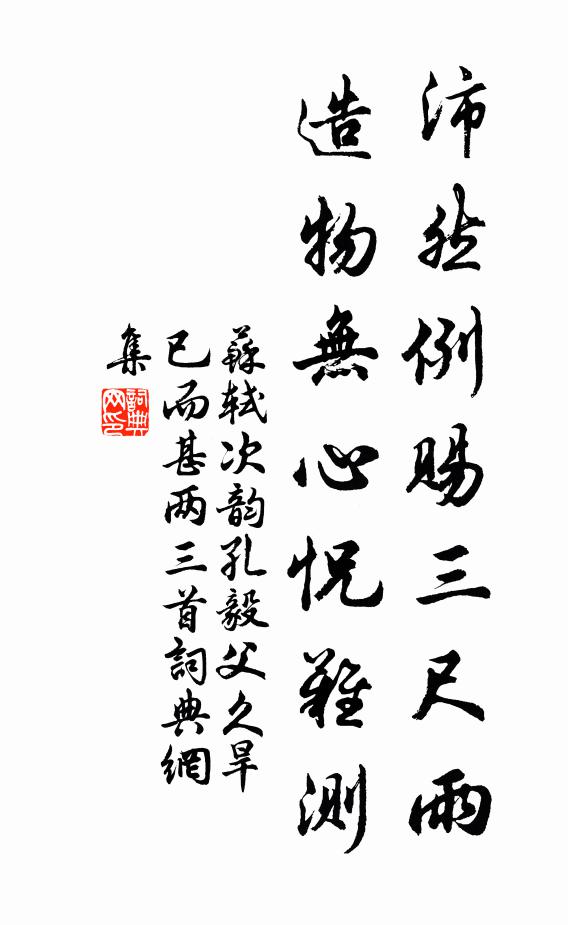 沛然例賜三尺雨
造物無心怳難測
蘇軾次韵孔毅父久旱
已而甚两三首詞典網
集
詞典
网印